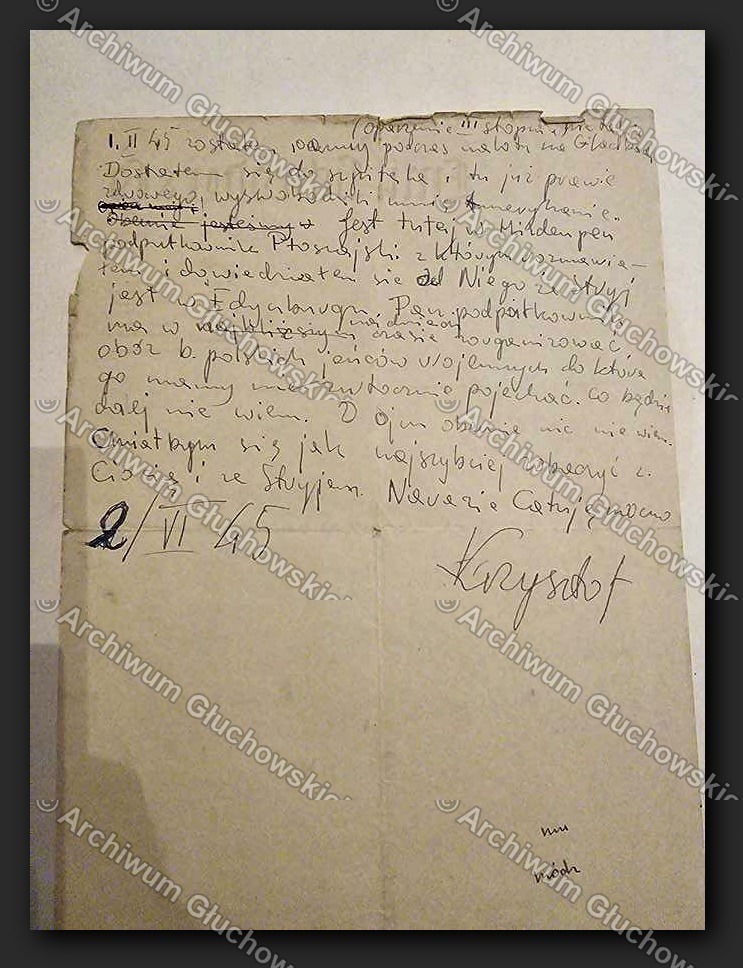 (oparzenie III stopnia
1. II 45 zostałem ranny podczas nalotu na Gladbeck
Dostałem się do szpitala i tu już prawie
zdrowego, wyswobodzili mnie Amerykanie.
Obecnie jesteśmy w Jest tutaj w Minden pan
podpułkownik Ptaszyński z którym rozmawia-
łem i dowiedziałem się od Niego że Stryj
jest w Edynburgu. Pan podpułkownik
ma w najbliższym czasie zorganizować
obóz b. polskich jeńców wojennych do które
go mamy niezwłocznie pojechać. Co będzie
dalej nie wiem. O Ojcu obecnie nic nie wiem.
Chciałbym się jak najszybciej zobaczyć z.
Ciocią i ze Stryjem. Na razie Całuję mocno
2/VI 45
Krzysztof
© Archiwum Głuchowskich